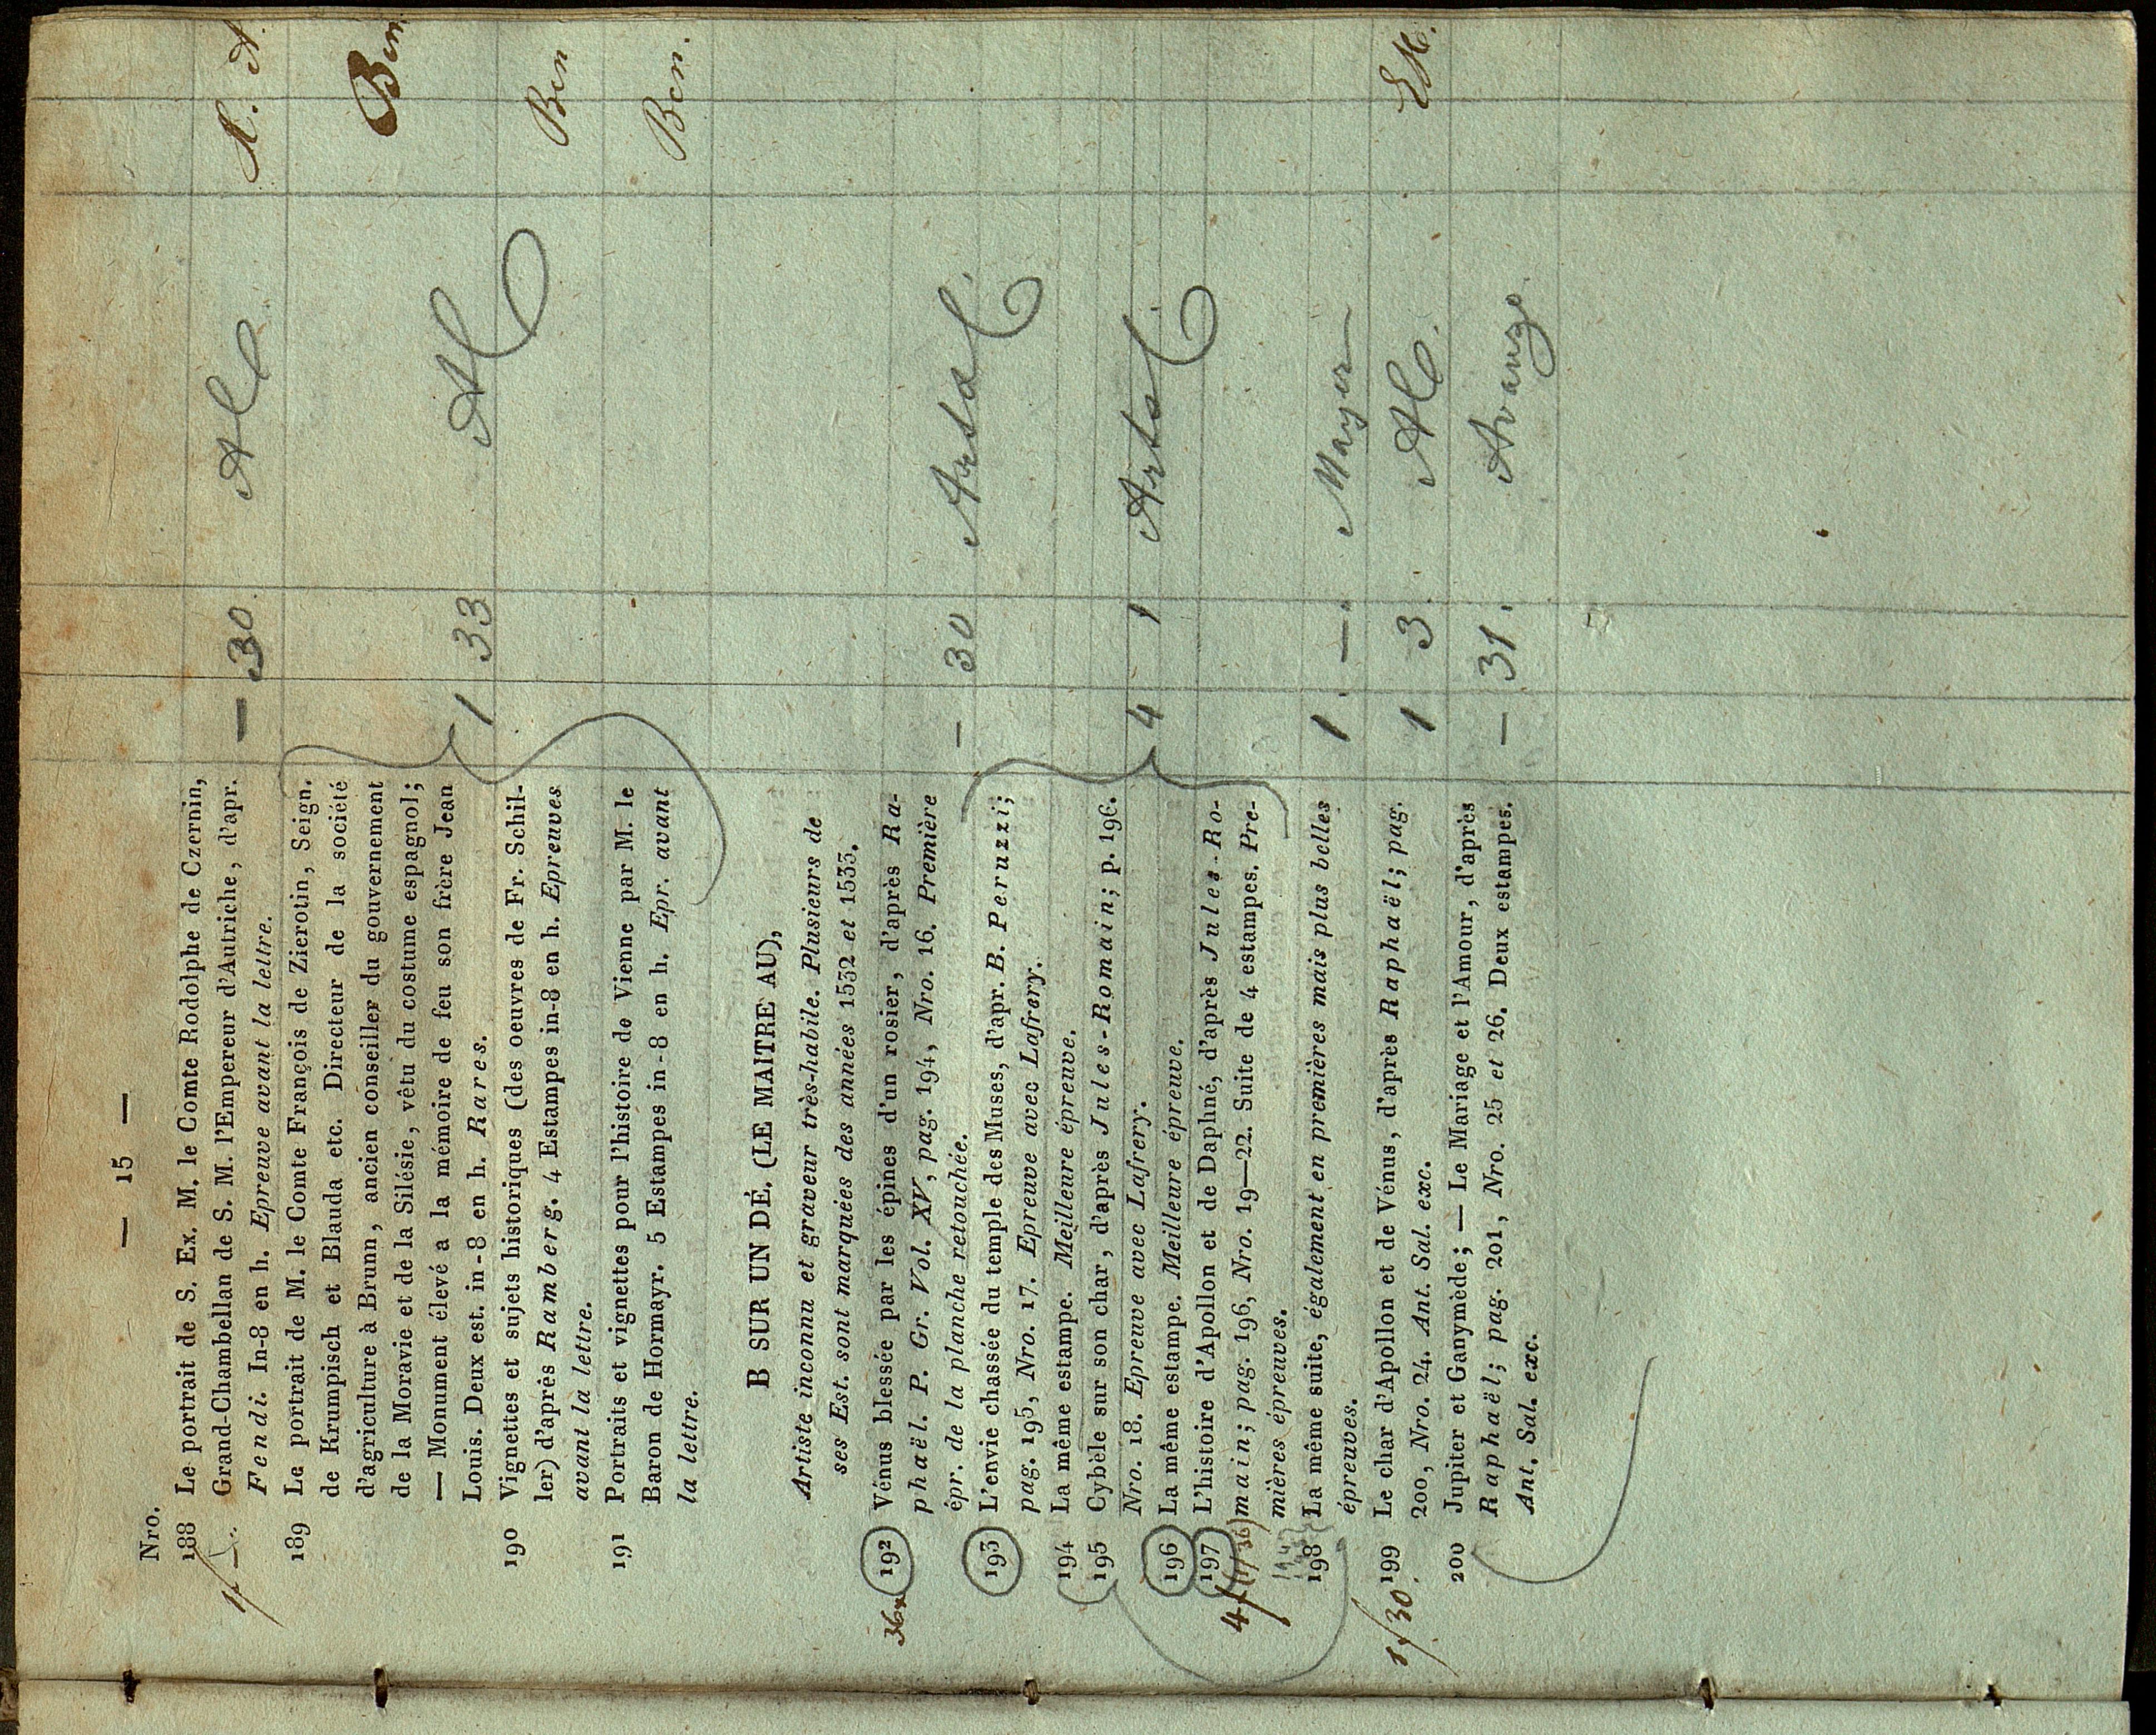 — 15 —
Nro.
188 Le portrait de S. Ex. M. le Comte Rodolphe de Czernin,
Grand-Chambellan de S. M. l'Empereur d'Autriche, d'apr. — 30.
Fendi. In-8 en h. Epreuve avant la lettre.
189 Le portrait de M. le Comte François de Zierotin, Seign.
de Krumpisch et Blauda etc. Directeur de la société
d'agriculture à Brunn, ancien conseiller du gouvernement
de la Moravie et de la Silésie, vêtu du costume espagnol;
— Monument élevé a la mémoire de feu son frère Jean
Louis. Deux est. in-8 en h. Rares. 1 33
190 Vignettes et sujets historiques (des oeuvres de Fr. Schil-
ler) d'après Ramberg. 4 Estampes in-8 en h. Epreuves Ben
avant la lettre.
191 Portraits et vignettes pour l'histoire de Vienne par M. le
Baron de Hormayr. 5 Estampes in-8 en h. Epr. avant Ben.
la lettre.
B SUR UN DÉ. (LE MAITRE AU),
Artiste inconnu et graveur très-habile. Plusieurs de
ses Est. sont marquées des années 1532 et 1533.
36x 192 Vénus blessée par les épines d'un rosier, d'après Ra-
phaël. P. Gr. Vol. XV, pag. 194, Nro. 16. Première
épr. de la planche retouchée. — 30 Arta
193 L'envie chassée du temple des Muses, d'apr. B. Peruzzi;
pag. 195, Nro. 17. Epreuve avec Lafrery.
194 La même estampe. Meilleure épreuve.
195 Cybèle sur son char, d'après Jules-Romain; p. 196.
Nro. 18. Epreuve avec Lafrery. 4 1 Arta
196 La même estampe. Meilleure épreuve.
197 L'histoire d'Apollon et de Daphné, d'après Jules-Ro-
main; pag. 196, Nro. 19—22. Suite de 4 estampes. Pre-
mières épreuves.
198 La même suite, également en premières mais plus belles 1. —. Mayer
épreuves.
199 Le char d'Apollon et de Vénus, d'après Raphaël; pag.
1/30. 200, Nro. 24. Ant. Sal. exc. 1 3.
200 Jupiter et Ganymède; — Le Mariage et l'Amour, d'après
Raphaël; pag. 201, Nro. 25 et 26. Deux estampes. — 31. Avanzo.
Ant. Sal. exc.